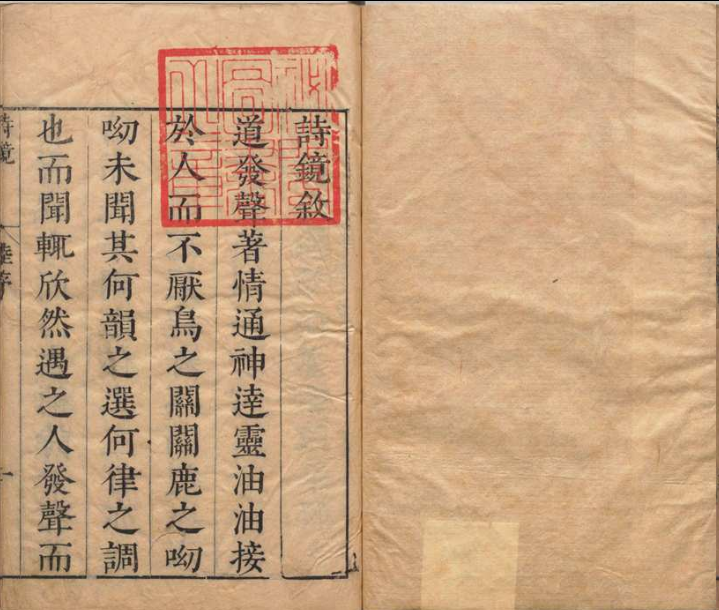 詩鏡敘
道發聲著情通神達靈油油接
於人而不厭鳥之關關鹿之呦
呦未聞其何韻之選何律之調
也而聞輒欣然遇之人發聲而
詩鏡
陸序
一